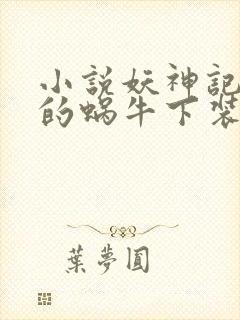 小説妖神記
的蝸牛下裝
葉夢圓